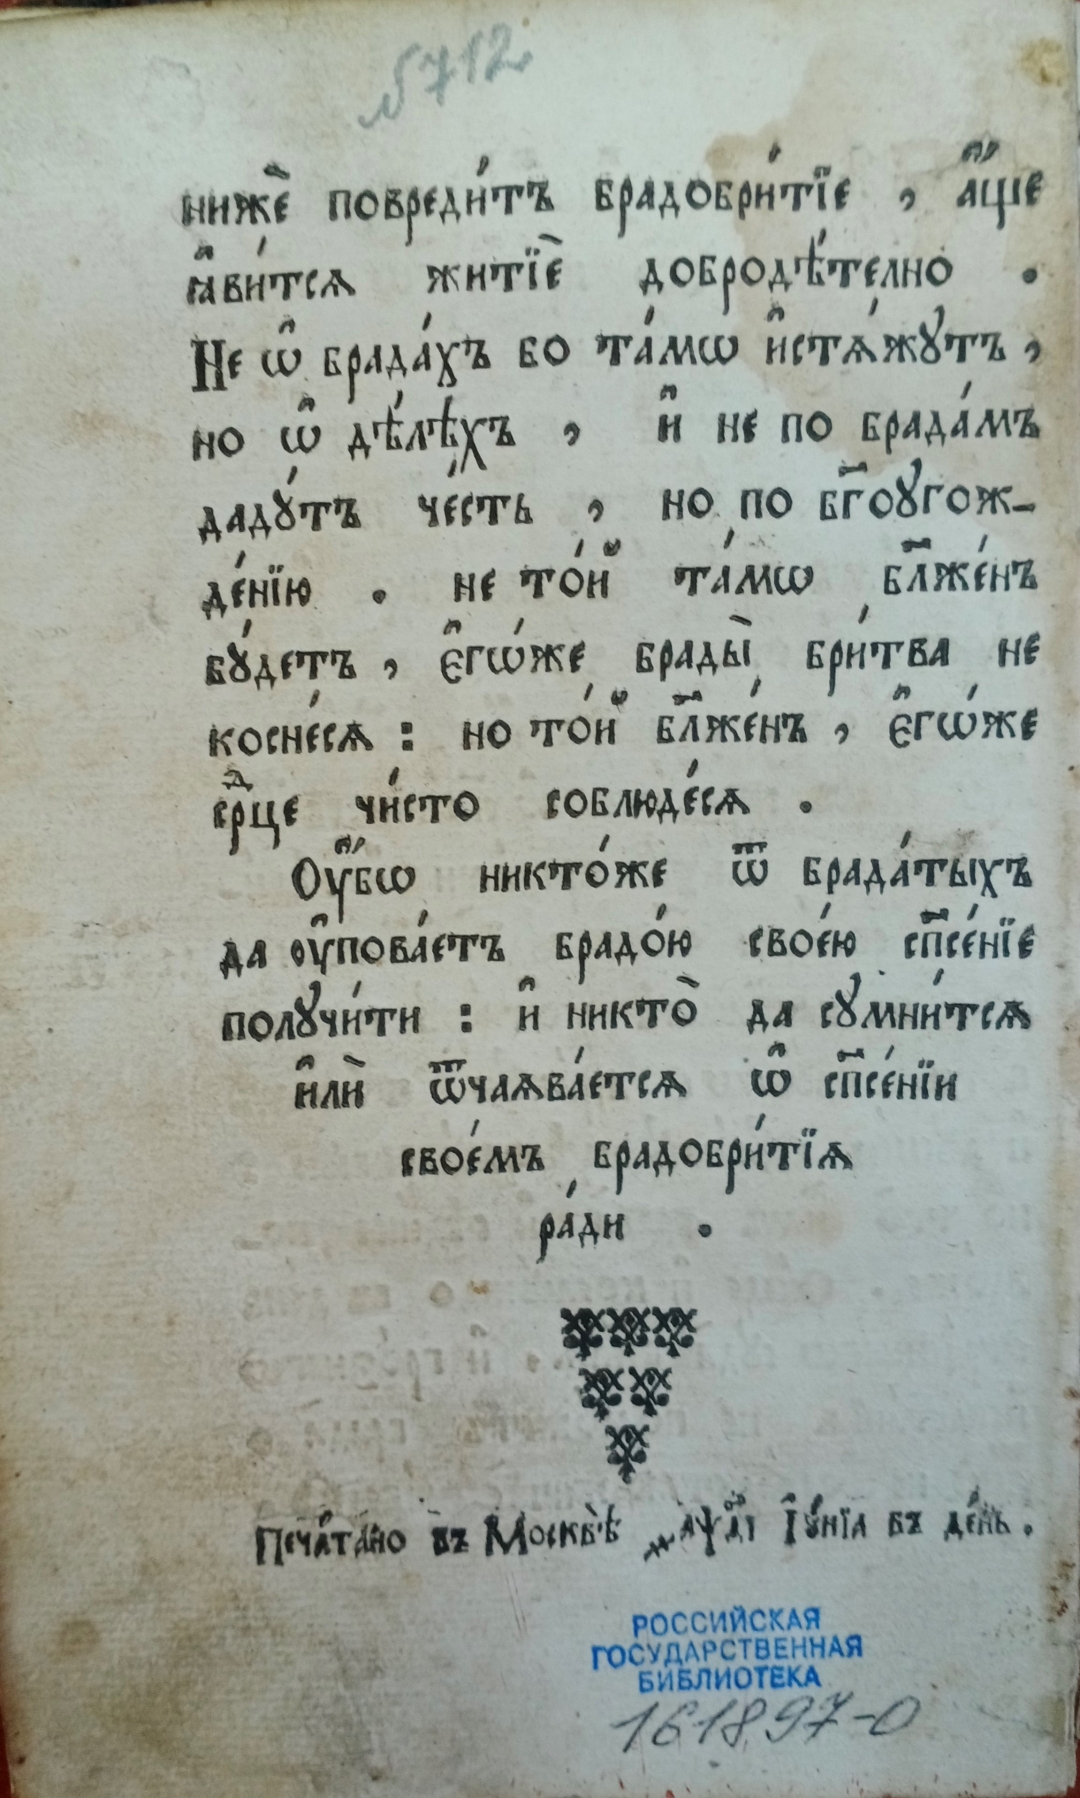 № 5712.
нижѐ повреди́тъ брадобри́тїе , а҆́ще
ꙗ҆ви́тсѧ житїѐ добродѣ́телно .
Не ѡ҆ брада́хъ бо та́мѡ и҆стѧ́жꙋтъ ,
но ѡ҆ дѣ́лѣхъ , и҆ не по брада́мъ
дадꙋ́тъ че́сть , но по бг҃оꙋгож-
де́нїю . не то́й та́мѡ бл҃же́нъ
бꙋ́детъ , є҆гѡ́же брады̀ бри́тва не
косне́сѧ : но то́й бл҃же́нъ , є҆гѡ́же
се́рⷣце чи́сто соблюде́сѧ .
Оу҆́бѡ никто́же ѿ брада́тыхъ
да оу҆пова́етъ брадо́ю свое́ю сп҃се́нїе
полꙋчи́ти : и҆ никто̀ да сꙋмни́тсѧ
и҆лѝ ѿчаѧва́етсѧ ѡ҆ сп҃се́нїи
свое́мъ брадобри́тїѧ
ра́ди .
Печа́тано въ Москвѣ̀ ҂аѱд҃і І҆ꙋ́нїа въ де́нь .
РОССИЙСКАЯ
ГОСУДАРСТВЕННАЯ
БИБЛИОТЕКА
161897-0